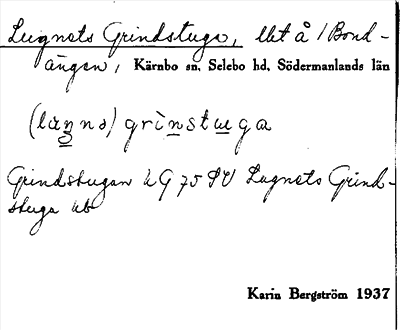 Lugnets Grindstuga, llt å / Bond-
ängen, Kärnbo sn, Selebo hd, Södermanlands län
grìnstuga
Grindstugan 75 Lugnets Grind-
stuga
Karin Bergström 1937